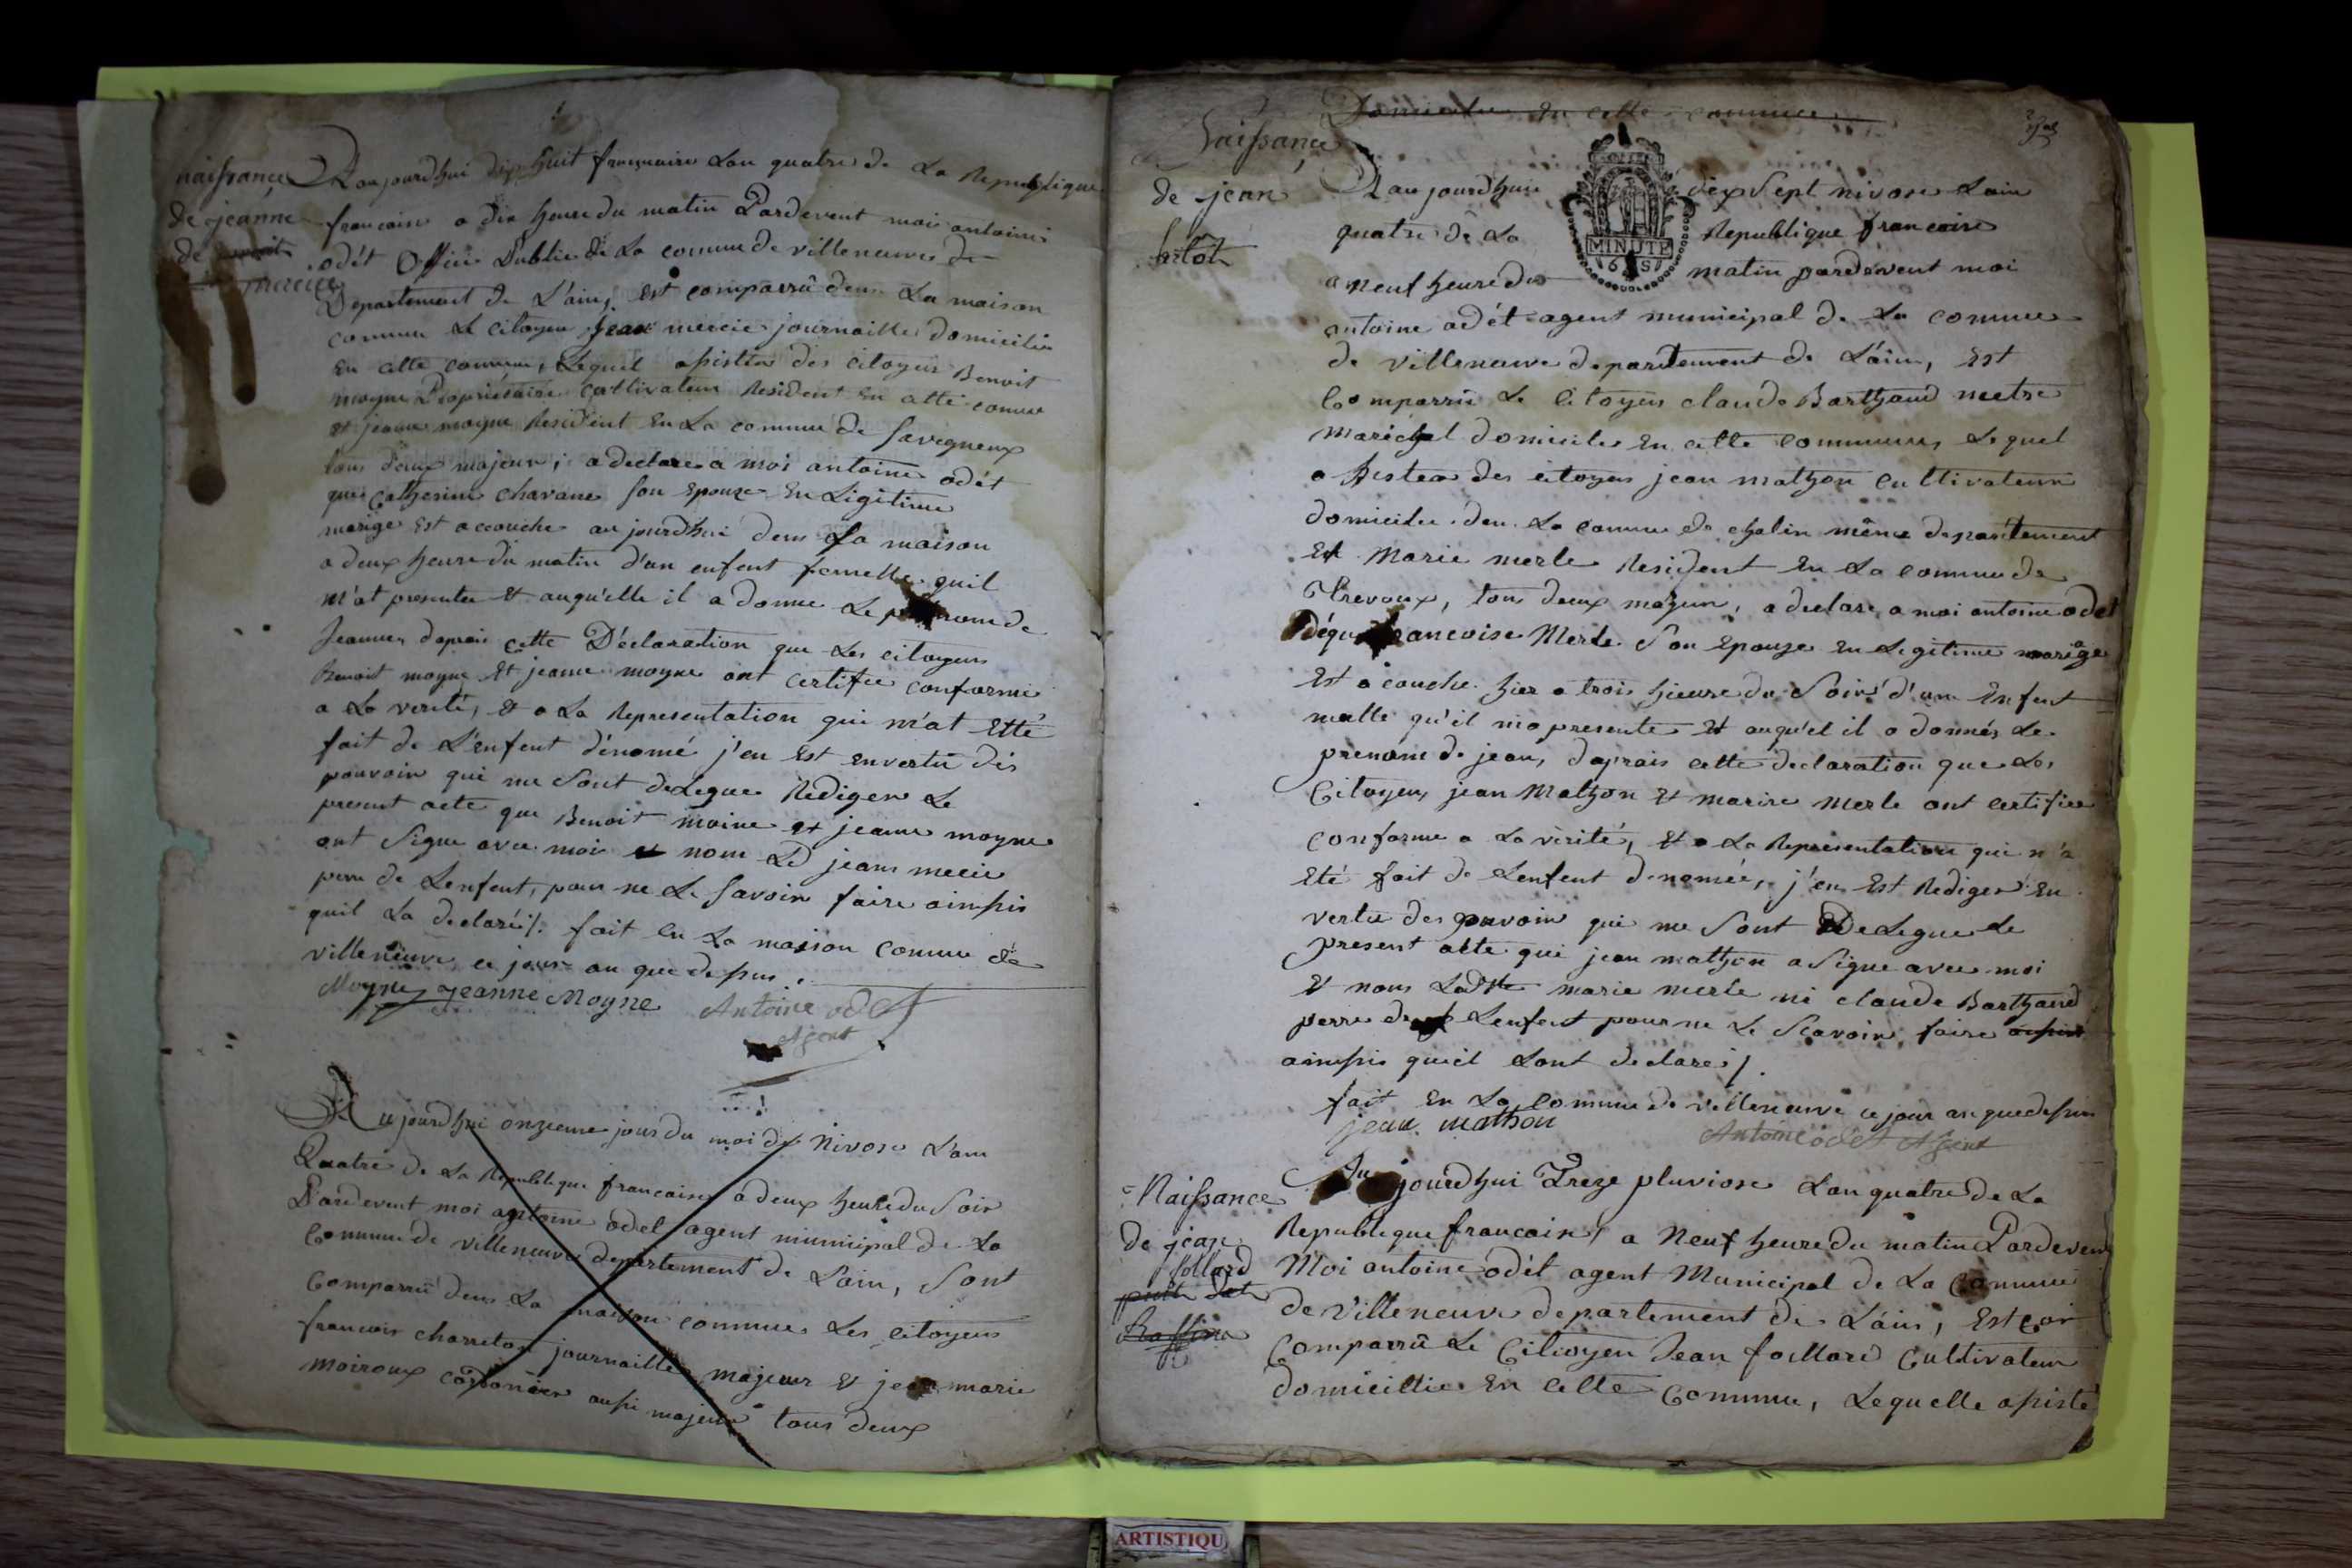 naissance
de jeanne
de
mercier
aujourdhui dix huit frimaire Lan quatre de La Republique
francaise a dix heure du matin Pardevent moi antoine
odét Officié Public de La comune de villeneuve de
Departement de L'ain, est comparrû dens La maison
comune Le citoyen jean mercie journaille domicilie
en cette comune, Lequel assistée des citoyens Benoit
moyne Propriétaire Cultivateur Resident en cette comune
et jeanne moyne Resident En La comune de Savigneux
tous deux majeur; a declare a moi antoine odét
que Catherine Chavane son Epouze En Ligitime
marige est accouché aujourd'hui dens sa maison
a deux heure du matin d'un enfent femelle quil
m'at presentee et auqu'elle il a donne Le prenom de
Jeanne, daprais cette Déclaration que Les citoyens
Benoit moyne et jeanne moyne ont certifié conforme
a La verité, et a La Representation qui m'at Etté
fait de L'enfent dénomé j'en Est envertu dés
pouvoir qui me sont delegue Rediger Le
present acte que Benoit moine et jeanne moyne
ont Signe avec moi et nom Le jeans mecie
perre de Lenfent, pour ne Le Savoir faire ainssis
quil La declaré/. fait en La maison comune de
villeneuve ce jour an que dessus.
Moyne Jeanne Moyne Antoine odet
Agent
Aujourdhui onzieme jour du moi de Nivose L'an
Quatre de La Republique francaise a deux heure du Soir
Pardevent moi antoine odet agent municipal de La
Comune de villeneuve departement de Lain, Sont
Comparrû dens La maison comune Les citoyens
francois charreton journaille majeur et jean marie
moiroux cordonier aussi majeur tous deux
Domicilie En cette comune
Naissance
de jean
Aujourdhui dix Sept nivose Lain
quatre de La Republique francoise
a neuf heure du matin pardevent moi
MINUTE
antoine odét agent municipal de La comune
de villeneuve departement de L'ain, Est
Comparrû Le Citoyen claude Barthaud metre
maréchal domicile en cette comunne, Lequel
assistea des citoyens jean mathon cultivateur
domicilie den La comune de chalin même departement
Et Marie merle Resident En La comune de
Trevoux, tous deux majeur, a declare a moi antoine odet
déque francoise Merle S'on Epouze en Legitime mariage
Est acouche hier a trois hieure du Soir d'un Enfent
malle qu'il ma presente et auqu'el il a donnés Le
prenom de jean, daprais cette declaration que Les
Citoyens jean Mathon et marire merle ont certifiee
conforme a La vérité, et a La Representation qui m'a
Eté fait de Lenfent denomée, j'en Est Rediger En
vertu des pouvoir qui me Sont Delegue Le
present acte que jean mathon a Signe avec moi
et nous Ladste marie merle ni claude Barthaud
perre de Lenfent pour ne Le Scavoir faire
ainssis quiel Lont declare/.
fait En La Comune de villeneuve ce jour an que dessus
jean mathon
Antoine odet Agent
Naissance
de jean
follard
Aujourdhui Treze pluviose Lan quatre de La
Republique francaise, a Neuf heure du matin Pardevent
Moi antoine odét agent Municipal de La Comune
de Villeneuve departement de L'ain, Est
Comparrû Le Citioyen Jean follard Cultivateur
domicillie En Cette Comune, Lequelle assisté
ARTISTIQU